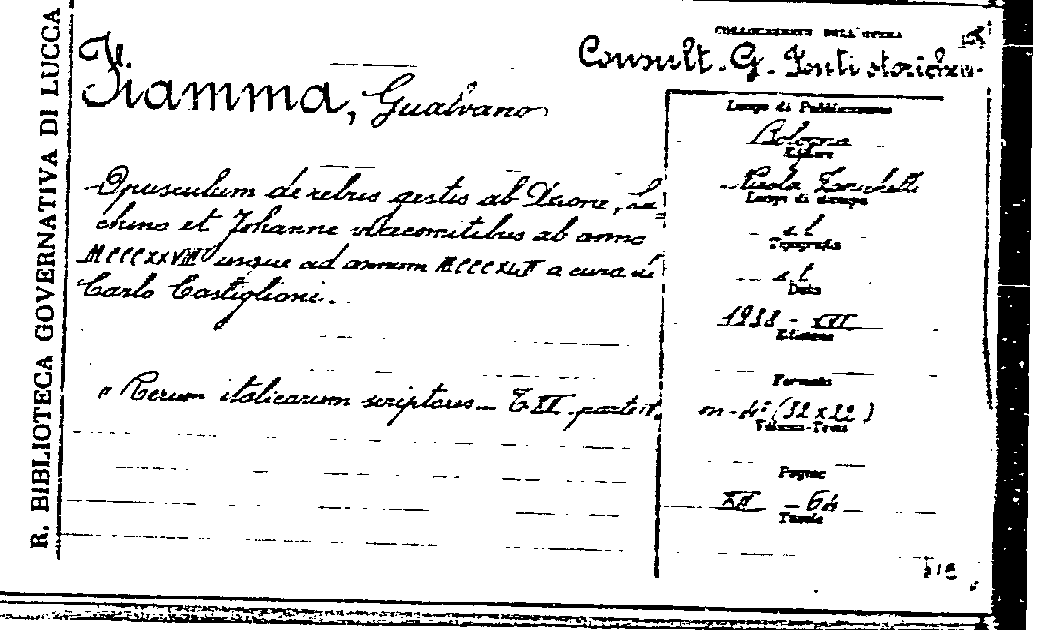 R. BIBLIOTECA GOVERNATIVA DI LUCCA
COLLOCAZIONE DELL'OPERA
Consult. G. Fonti storiche
Fiamma, Gualvano
Opusculum de rebus gestis ab Azone, Lu=
chino et Johanne vicecomitibus ab anno
MCCCXXVIII usque ad annum MCCCXLII a cura di
Carlo Castiglioni.
" Rerum italicarum scriptores - T XII parte
Luogo di Pubblicazione
Bologna
Editore
Nicola Zanichelli
Luogo di stampa
s.l.
Tipografia
s.t.
Data
1938 - XVI
Edizione
Formato
in-4° (32x22)
Volume-Tomo
Pagine
XII - 64
Tavole